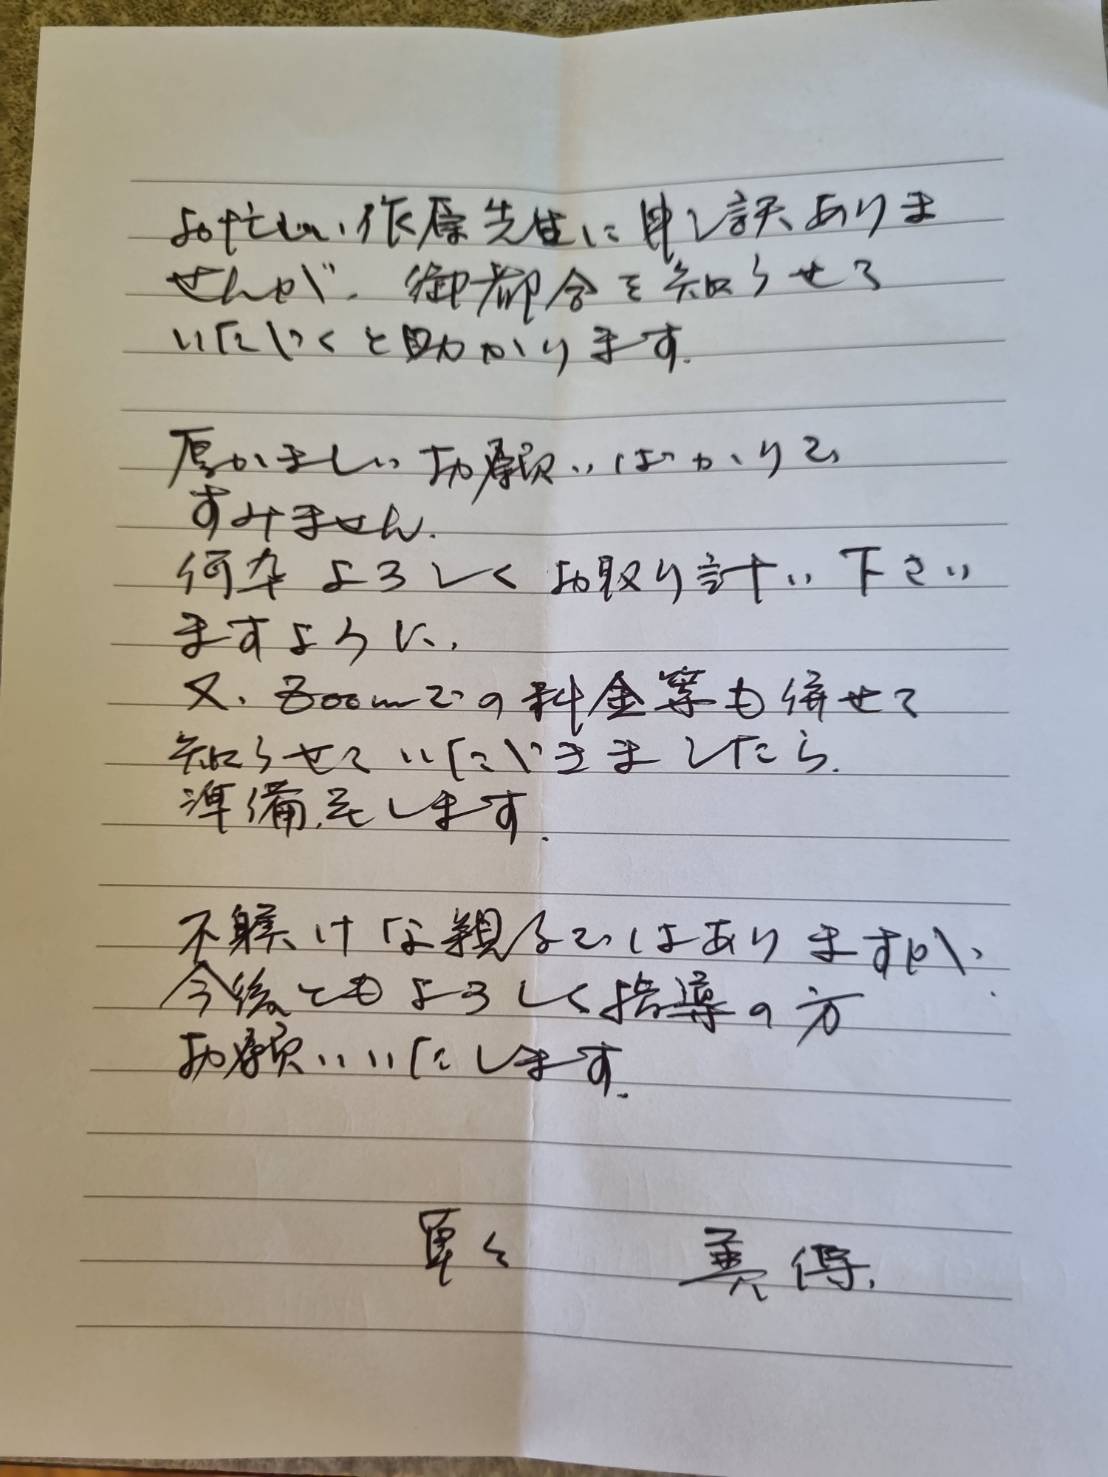 お忙しい作原先生に申し訳ありま
せんが、御都合を知らせて
いただくと助かります。
厚かましいお願いばかりで
すみません。
何卒よろしくお取り計い下さい
ますように、
又、Zoomでの料金等も併せて
知らせていただきましたら、
準備をします。
不躾けな親子ではありますが、
今後ともよろしく指導の方
お願いいたします。
草々